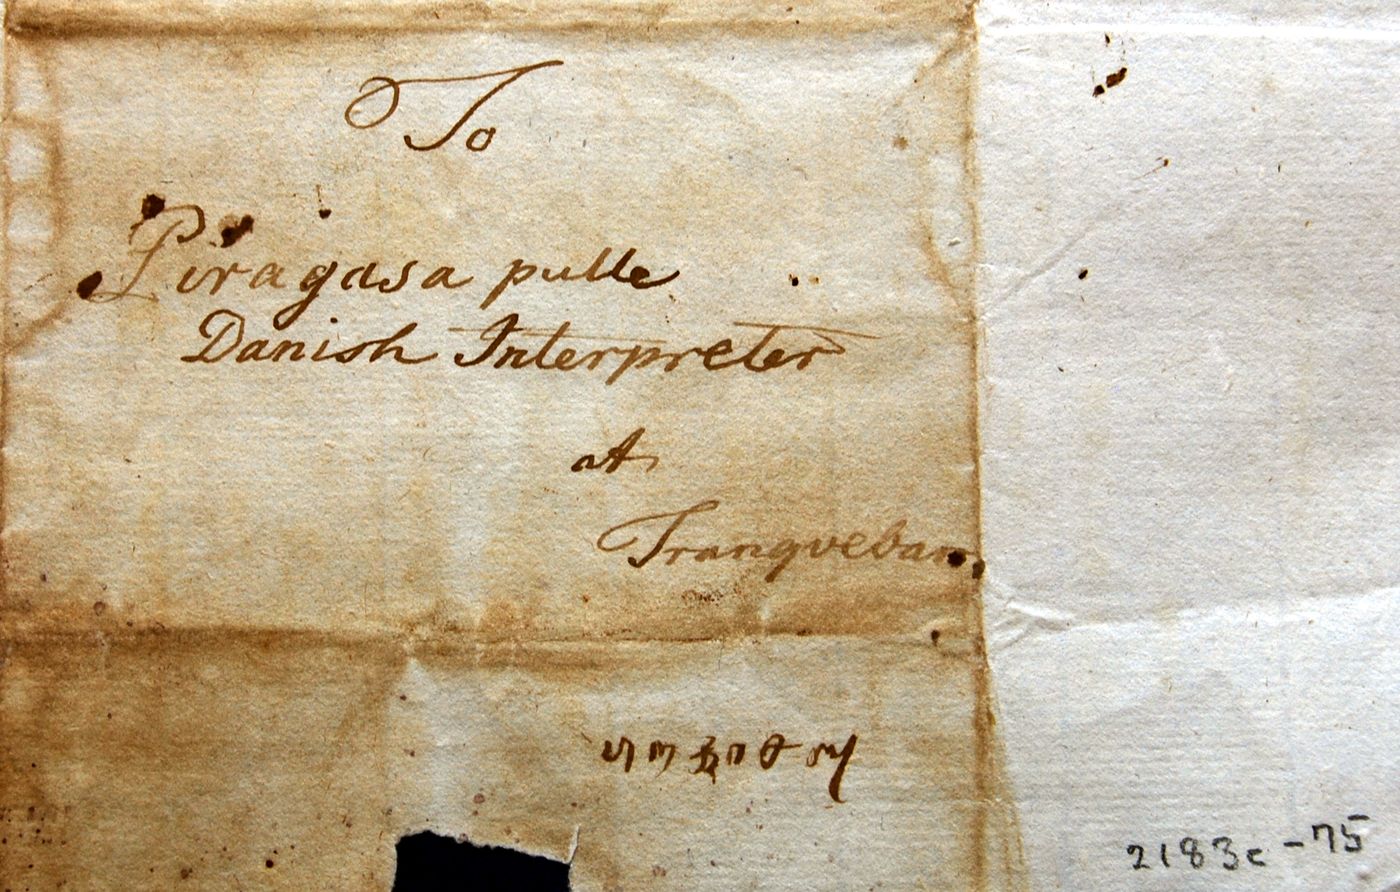 To
Piragasa pulle
Danish Interpreter
at
Tranqvebar
2183c-75